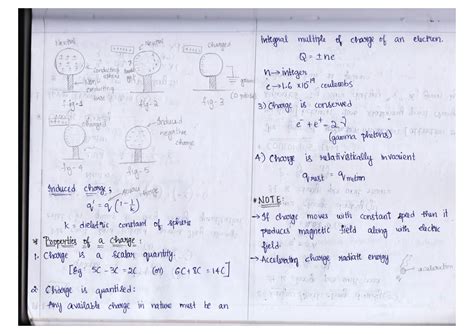 Neutral
Neutral
Charged
conducting
sphere
Non-
conducting
base
fig-1
fig-2
fig-3
ground
charged
Induced
negative
charge
fig-4
fig-5
Induced charge:
q' = q(1 - 1/k)
k = dieletric constant of sphere
* Properties of a charge:
1. Charge is a scalar quantity.
[Eg 5C - 3C = 2C (or) 6C + 8C = 14C]
2. Charge is quantised:
Any available charge in nature must be an
integral multiple of charge of an electron.
Q = ±ne
n → integer
e → 1.6 × 10⁻¹⁹ coulombs
3) Charge is conserved
e⁻ + e⁺ → 2γ
(gamma photons)
4) Charge is relativistically invarient
q rest = q motion
* NOTE:
→ If charge moves with constant speed then it
produces magnetic field along with electric
field.
→ Accelerating charge radiate energy
acceleration